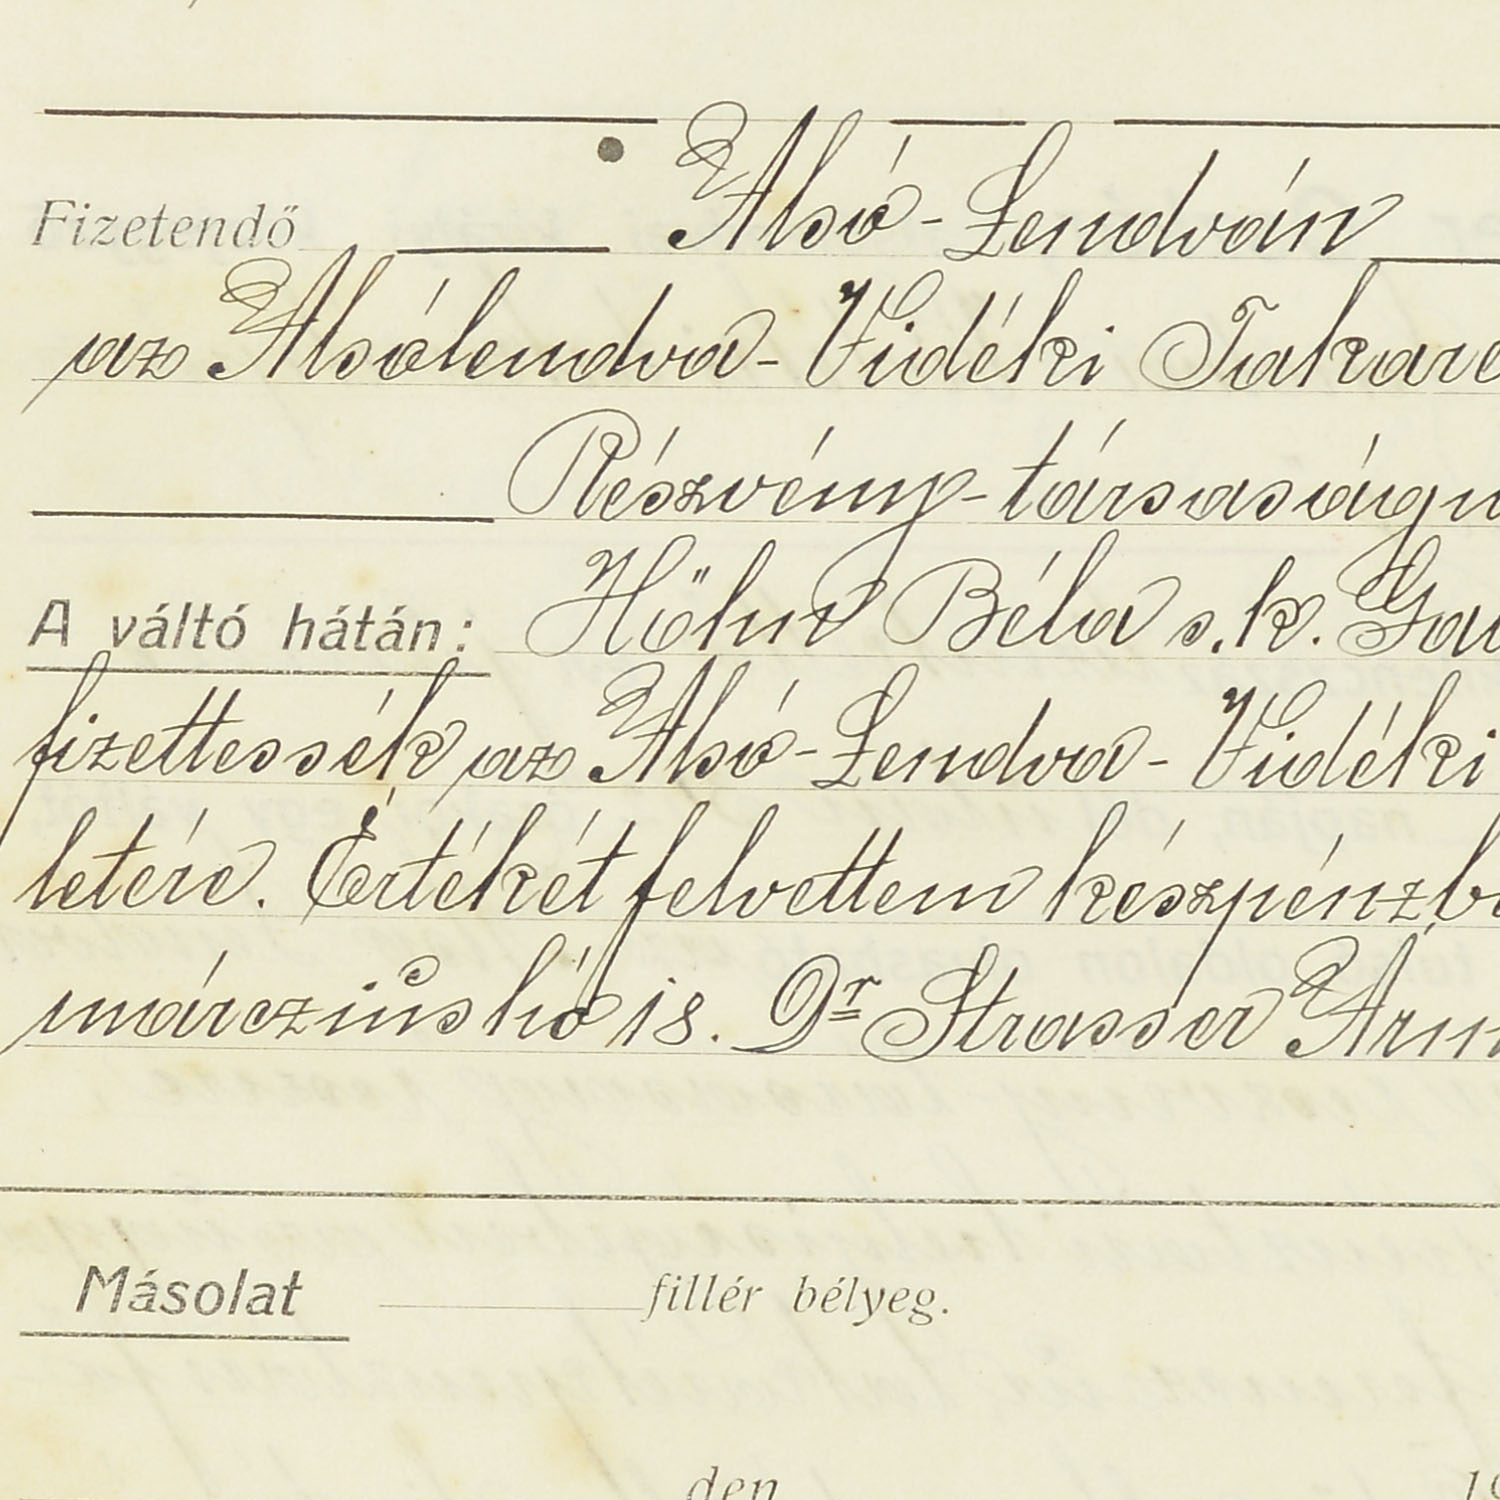 Fizetendő Alsó-Lendván
az Alsólendva-Vidéki Takaré
Részvény-társaságn
A váltó hátán: Hőhn Béla s.k.
fizettessék az Alsó-Lendva-Vidéki
letére. Értékét felvettem készpénzbe
márczius hó 18. Dr Strasser Árm
Másolat fillér bélyeg.
den 19